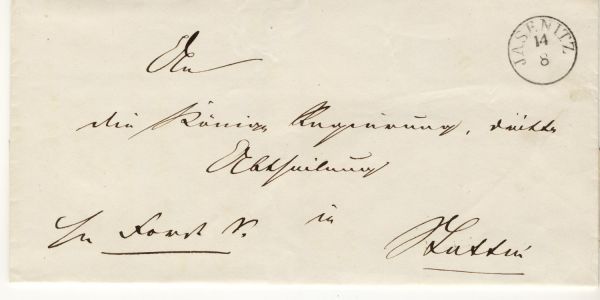 JASENITZ
14
8
An
die Königl. Regierung, dritte
Abtheilung
in
Forst V. Stettin